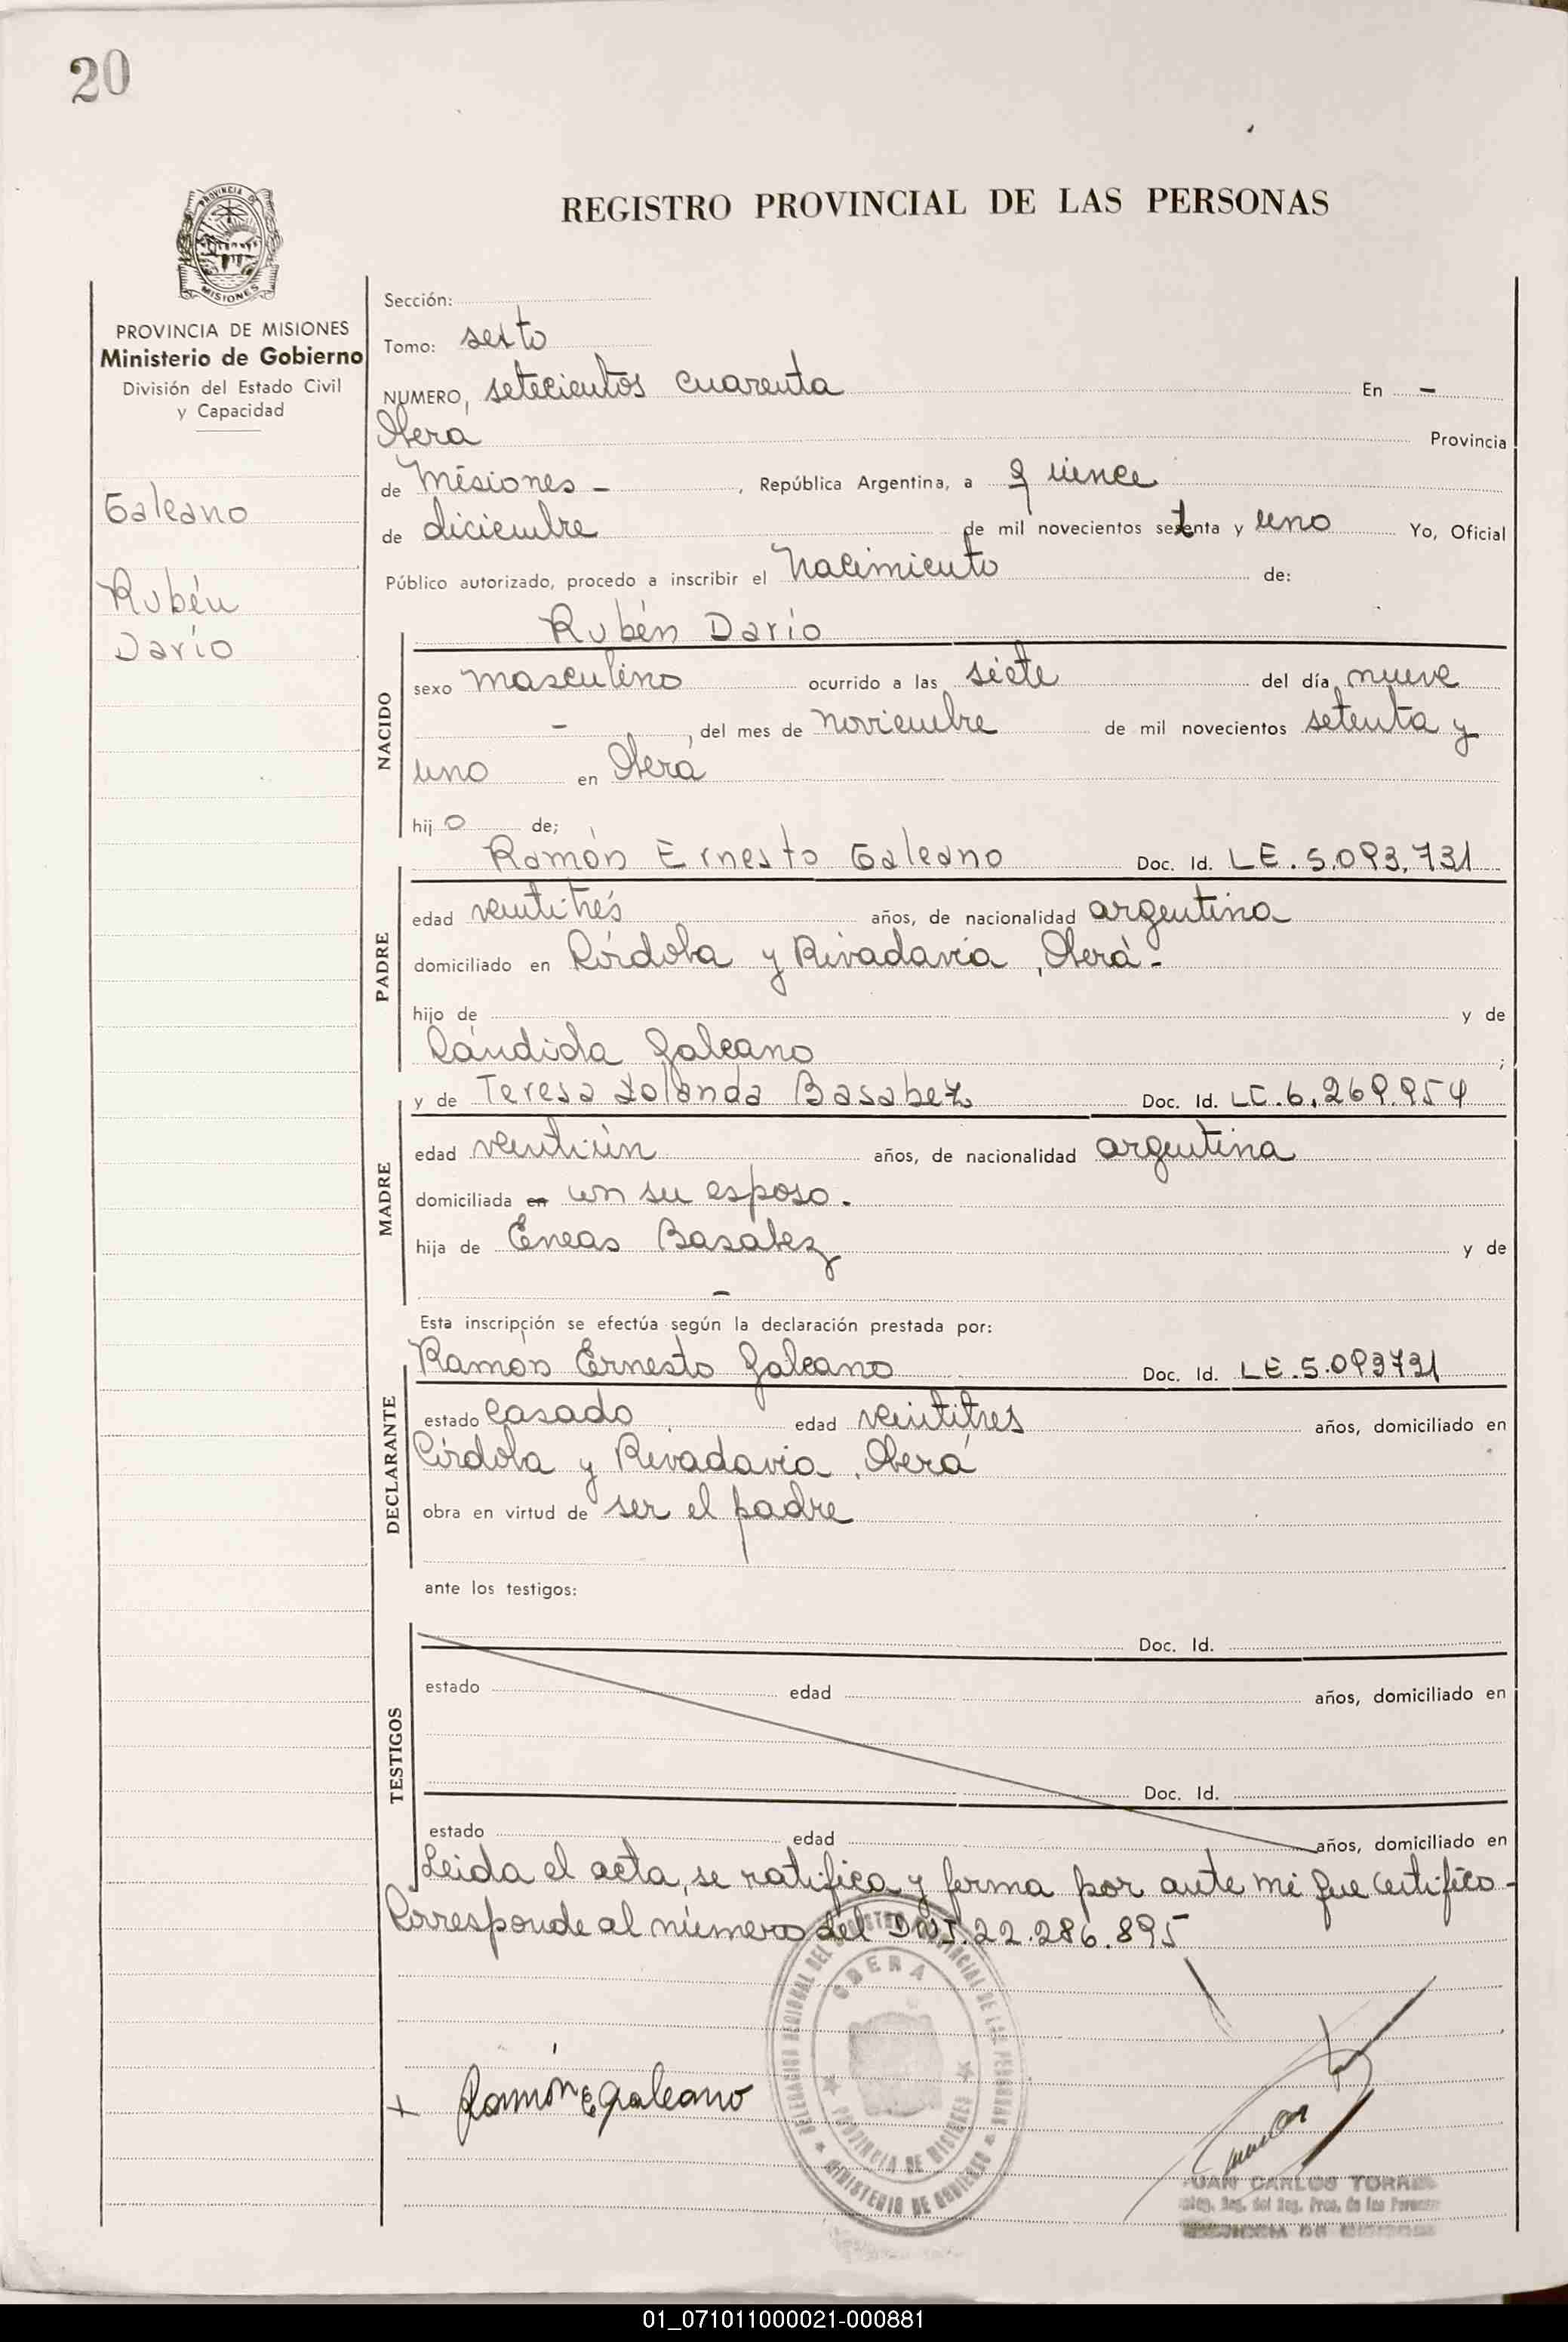 20
PROVINCIA
MISIONES
REGISTRO PROVINCIAL DE LAS PERSONAS
PROVINCIA DE MISIONES
Ministerio de Gobierno
División del Estado Civil
y Capacidad
Galeano
Rubén
Darío
Sección:
Tomo: sexto
NUMERO, setecientos cuarenta En -
Oberá Provincia
de Misiones - , República Argentina, a quince
de diciembre de mil novecientos setenta y uno Yo, Oficial
Público autorizado, procedo a inscribir el Nacimiento de:
NACIDO
Rubén Darío
sexo masculino ocurrido a las siete del día nueve
- , del mes de noviembre de mil novecientos setenta y
uno en Oberá
hijo de;
PADRE
Ramón Ernesto Galeano Doc. Id. L E . 5.093.731
edad veintitrés años, de nacionalidad argentina
domiciliado en Córdoba y Rivadavia , Oberá -
hijo de y de
Cándida Galeano ;
MADRE
y de Teresa Yolanda Basabez Doc. Id. LC.6.269.954
edad veintiún años, de nacionalidad argentina
domiciliada en con su esposo.
hija de Eneas Basabez y de
-
Esta inscripción se efectúa según la declaración prestada por:
DECLARANTE
Ramón Ernesto Galeano Doc. Id. L E . 5.093731
estado casado edad veintitres años, domiciliado en
Córdoba y Rivadavia , Oberá
obra en virtud de ser el padre
ante los testigos:
TESTIGOS
Doc. Id.
estado edad años, domiciliado en
Doc. Id.
estado edad años, domiciliado en
Leida el acta, se ratifica y firma por ante mi que certifico -
Corresponde al número del DNI.22.286.895
DELEGACION REGIONAL DEL REGISTRO PROVINCIAL DE LAS PERSONAS
OBERA
PROVINCIA DE MISIONES
MINISTERIO DE GOBIERNO
+ Ramón E Galeano
JUAN CARLOS TORRES
Reg. del Reg. Prov. de las Personas
01_071011000021-000881